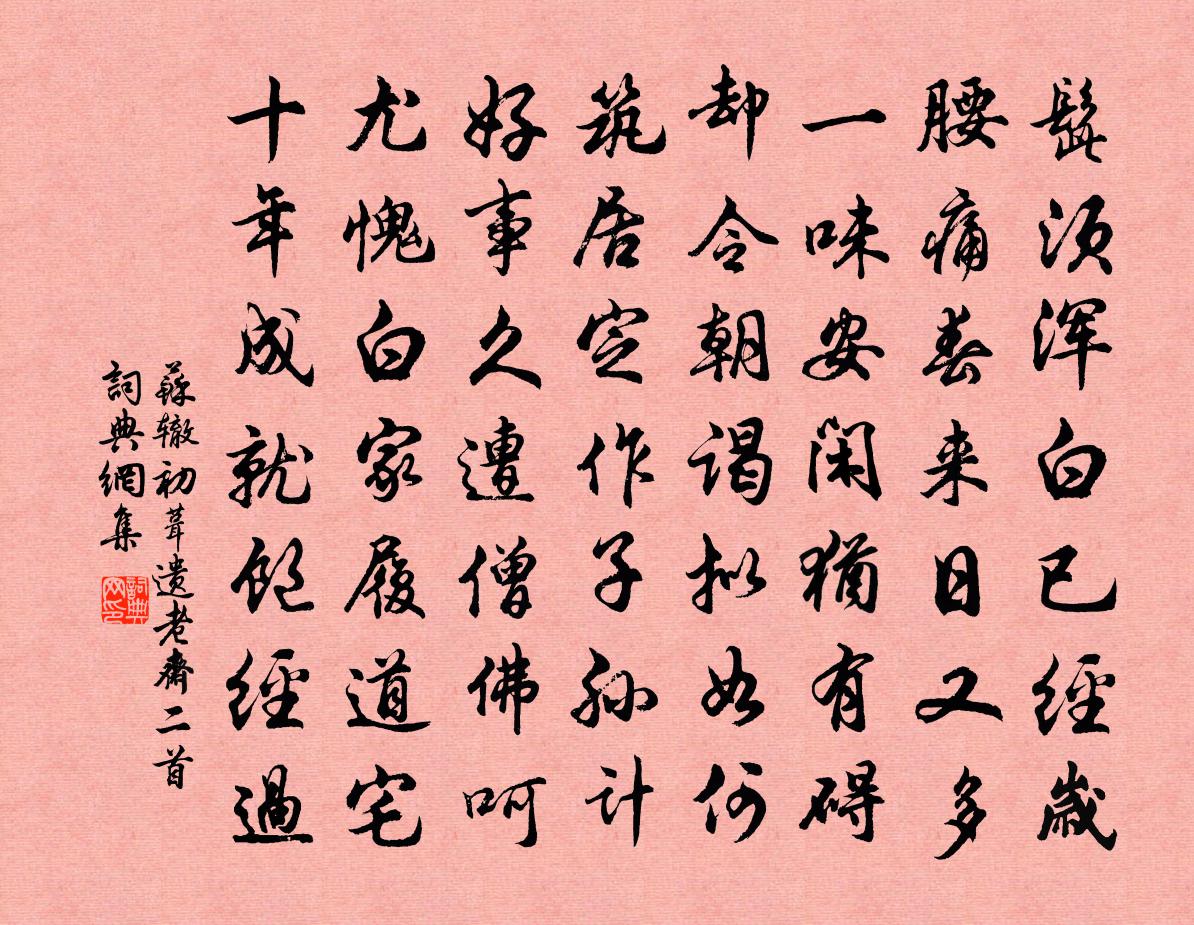 髭须浑白已经歳
腰痛春来日又多
一味安闲猶有碍
却令朝谒拟如何
筑居定作子孙计
好事久遭僧佛呵
尤愧白家履道宅
十年成就飽经過
蘇辙初葺遗老齋二首
詞典網集
詞典网印